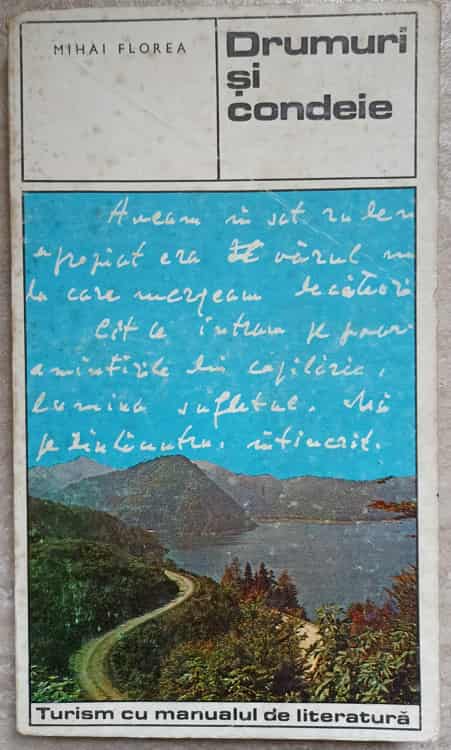 MIHAI FLOREA
Drumuri
și
condeie
Aveam în sat
apropiat era vărul
la care mergeam
Cît ce intram pe
amintirile din copilărie,
lumina sufletul.
pe dinlăuntru, întinerit.
Turism cu manualul de literatură